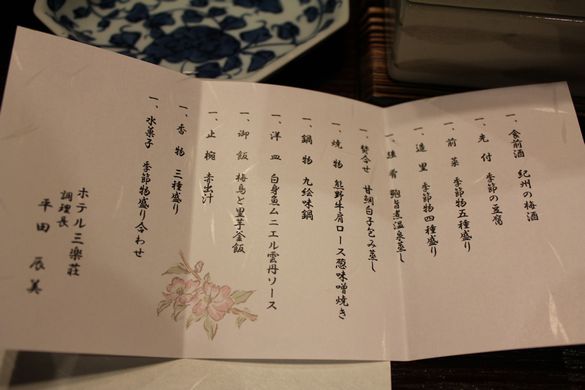 一、食前酒　紀州の梅酒
一、先付　季節の豆腐
一、前菜　季節物五種盛り
一、造里　季節物四種盛り
一、強肴　鮑旨煮温泉蒸し
一、焚合せ　甘鯛白子包み蒸し
一、焼物　熊野牛肩ロース葱味噌焼き
一、鍋物　九絵味鍋
一、洋皿　白身魚ムニエル雲丹ソース
一、御飯　梅鳥と里芋釜飯
一、止椀　赤出汁
一、香物　三種盛り
一、水菓子　季節物盛り合わせ
ホテル三楽荘
調理長
平田辰美